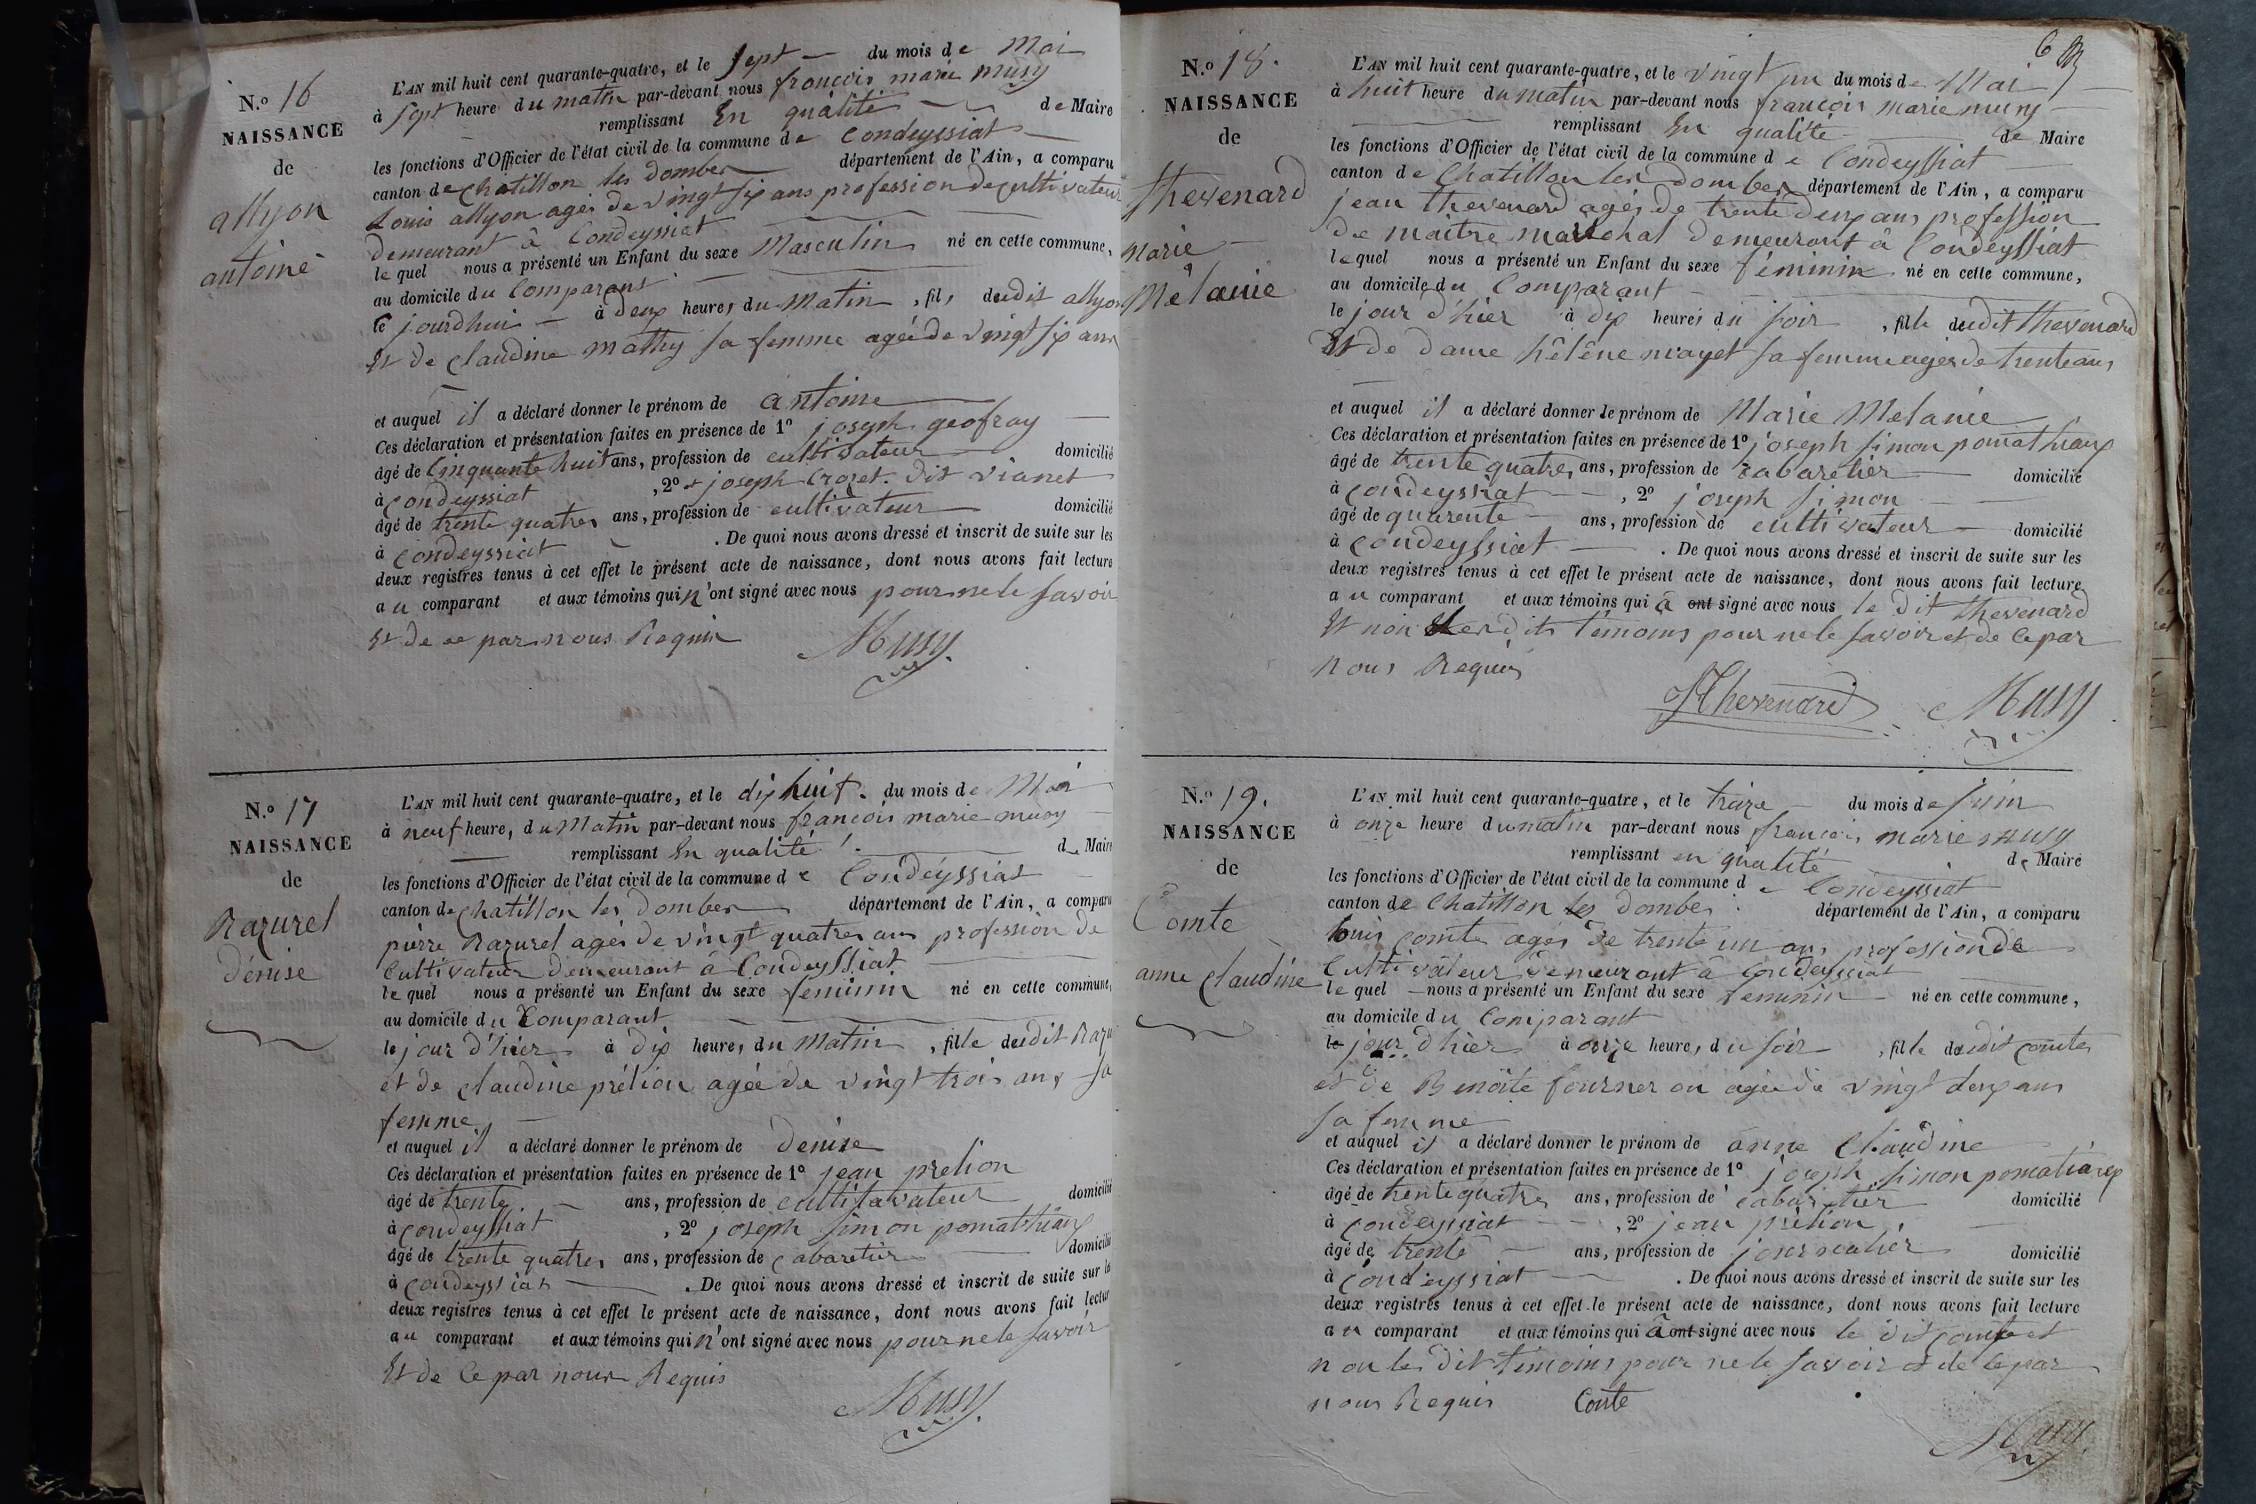 N.º 16
NAISSANCE
de
allyon
antoine
L'AN mil huit cent quarante-quatre, et le sept du mois de Mai
à sept heure du matin par-devant nous francois marie musy
remplissant En qualité de Maire
les fonctions d'Officier de l'état civil de la commune de Condeyssiat
canton de Chatillon les dombes département de l'Ain, a comparu
Louis allyon agés de vingt six ans profession de cultivateur
demeurant à Condeyssiat
le quel nous a présenté un Enfant du sexe Masculin né en cette commune,
au domicile du Comparant
le jourdhui à deux heures du Matin, fils dudit allyon
Et de claudine mathy sa femme agée de vingt six ans
et auquel il a déclaré donner le prénom de antoine
Ces déclaration et présentation faites en présence de 1º joseph geofray
âgé de Cinquante huit ans, profession de cultivateur domicilié
à Condeyssiat, 2º joseph Crozet dit vianet
âgé de trente quatres ans, profession de cultivateur domicilié
à Condeyssiat. De quoi nous avons dressé et inscrit de suite sur les
deux registres tenus à cet effet le présent acte de naissance, dont nous avons fait lecture
au comparant et aux témoins qui n'ont signé avec nous pour ne le savoir
Et de ce par nous Requis
Musy
N.º 17
NAISSANCE
de
Razurel
dénise
L'AN mil huit cent quarante-quatre, et le dix huit du mois de Mai
à neuf heure, du Matin par-devant nous francois marie musy
remplissant En qualité de Maire
les fonctions d'Officier de l'état civil de la commune de Condéyssiat
canton de chatillon les dombes département de l'Ain, a comparu
pierre Razurel agés de vingt quatres ans profession de
Cultivateur demeurant à Condeyssiat
le quel nous a présenté un Enfant du sexe feminin né en cette commune,
au domicile du Comparant
le jour d'hier à dix heures du Matin, fille dudit Razu
et de claudine prélion agée de vingt trois ans sa
femme
et auquel il a déclaré donner le prénom de Denise
Ces déclaration et présentation faites en présence de 1º jean prelion
âgé de trente ans, profession de cultitavateur domicilié
à Condeyssiat, 2º joseph simon pomathiaux
âgé de trente quatres ans, profession de Cabaretier domicilié
à Condeyssiat. De quoi nous avons dressé et inscrit de suite sur les
deux registres tenus à cet effet le présent acte de naissance, dont nous avons fait lectur
au comparant et aux témoins qui n'ont signé avec nous pour ne le savoir
Et de Ce par nous Requis
Musy
N.º 18.
NAISSANCE
de
thevenard
marie
Mélanie
L'AN mil huit cent quarante-quatre, et le vingt un du mois de Mai
à huit heure du matin par-devant nous francois marie musy
remplissant En qualité de Maire
les fonctions d'Officier de l'état civil de la commune de Condeyssiat
canton de Chatillon les Dombes département de l'Ain, a comparu
jean thevenard agés de trente deux ans profession
de maitre marechal demeurant à Condeyssiat
le quel nous a présenté un Enfant du sexe féminin né en cette commune,
au domicile du Comparant
le jour d'hier à dix heures du soir, fille dudit thevenard
Et de dame hélêne mayet sa femme agés de trente ans
et auquel il a déclaré donner le prénom de Marie Melanie
Ces déclaration et présentation faites en présence de 1º joseph simon pomathiaux
âgé de trente quatres ans, profession de cabaretier domicilié
à Condeyssiat, 2º joseph simon
âgé de quarente ans, profession de cultivateur domicilié
à Condeyssiat. De quoi nous avons dressé et inscrit de suite sur les
deux registres tenus à cet effet le présent acte de naissance, dont nous avons fait lecture
au comparant et aux témoins qui à ont signé avec nous le dit thevenard
Et non les dits témoins pour ne le savoir et de Ce par
nous Requis
Thevenard Musy
N.º 19.
NAISSANCE
de
Comte
anne claudine
L'AN mil huit cent quarante-quatre, et le treize du mois de juin
à onze heure du matin par-devant nous francois marie musy
remplissant en qualité de Maire
les fonctions d'Officier de l'état civil de la commune de Condeyssiat
canton de Chatillon les dombes département de l'Ain, a comparu
louis comte agés de trente un ans profession de
Cultivateur demeurant à Condeyssiat
le quel nous a présenté un Enfant du sexe feminin né en cette commune,
au domicile du Comparant
le jour d'hier à onze heures du soir, fille dudit comte
et de Benoite fourner on agée de vingt deux ans
sa femme
et auquel il a déclaré donner le prénom de anne Claudine
Ces déclaration et présentation faites en présence de 1º joseph simon pomatiaux
âgé de trente quatres ans, profession de cabaretier domicilié
à Condeyssiat, 2º jean prélion
âgé de trente ans, profession de journalier domicilié
à Condeyssiat. De quoi nous avons dressé et inscrit de suite sur les
deux registres tenus à cet effet le présent acte de naissance, dont nous avons fait lecture
au comparant et aux témoins qui à ont signé avec nous le dit comte et
non les dit témoins pour ne le savoir et de Ce par
nous Requis Conte
Musy